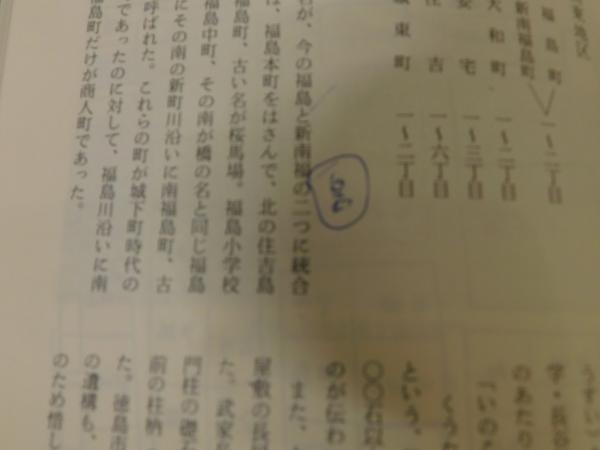 東地区
福島町
新南福島町
一〜二丁目
大和町 一〜二丁目
安宅 一〜三丁目
住吉 一〜六丁目
城東町 一〜二丁目
島
名が、今の福島と新南福の二つに統合
は、福島本町をはさんで、北の住吉島
福島町、古い名が桜馬場。福島小学校
福島中町、その南が橋の名と同じ福島
にその南の新町川沿いに南福島町、古
呼ばれた。これらの町が城下町時代の
であったのに対して、福島川沿いに南
福島町だけが商人町であった。
うすい
学・長谷
のあたり
「いのé
くうた
という。
〇〇石以
のが伝わ
また、
屋敷の長屋
た。武家屋
門柱の礎石
前の柱
た。徳島市
の遺構も、
のため惜し